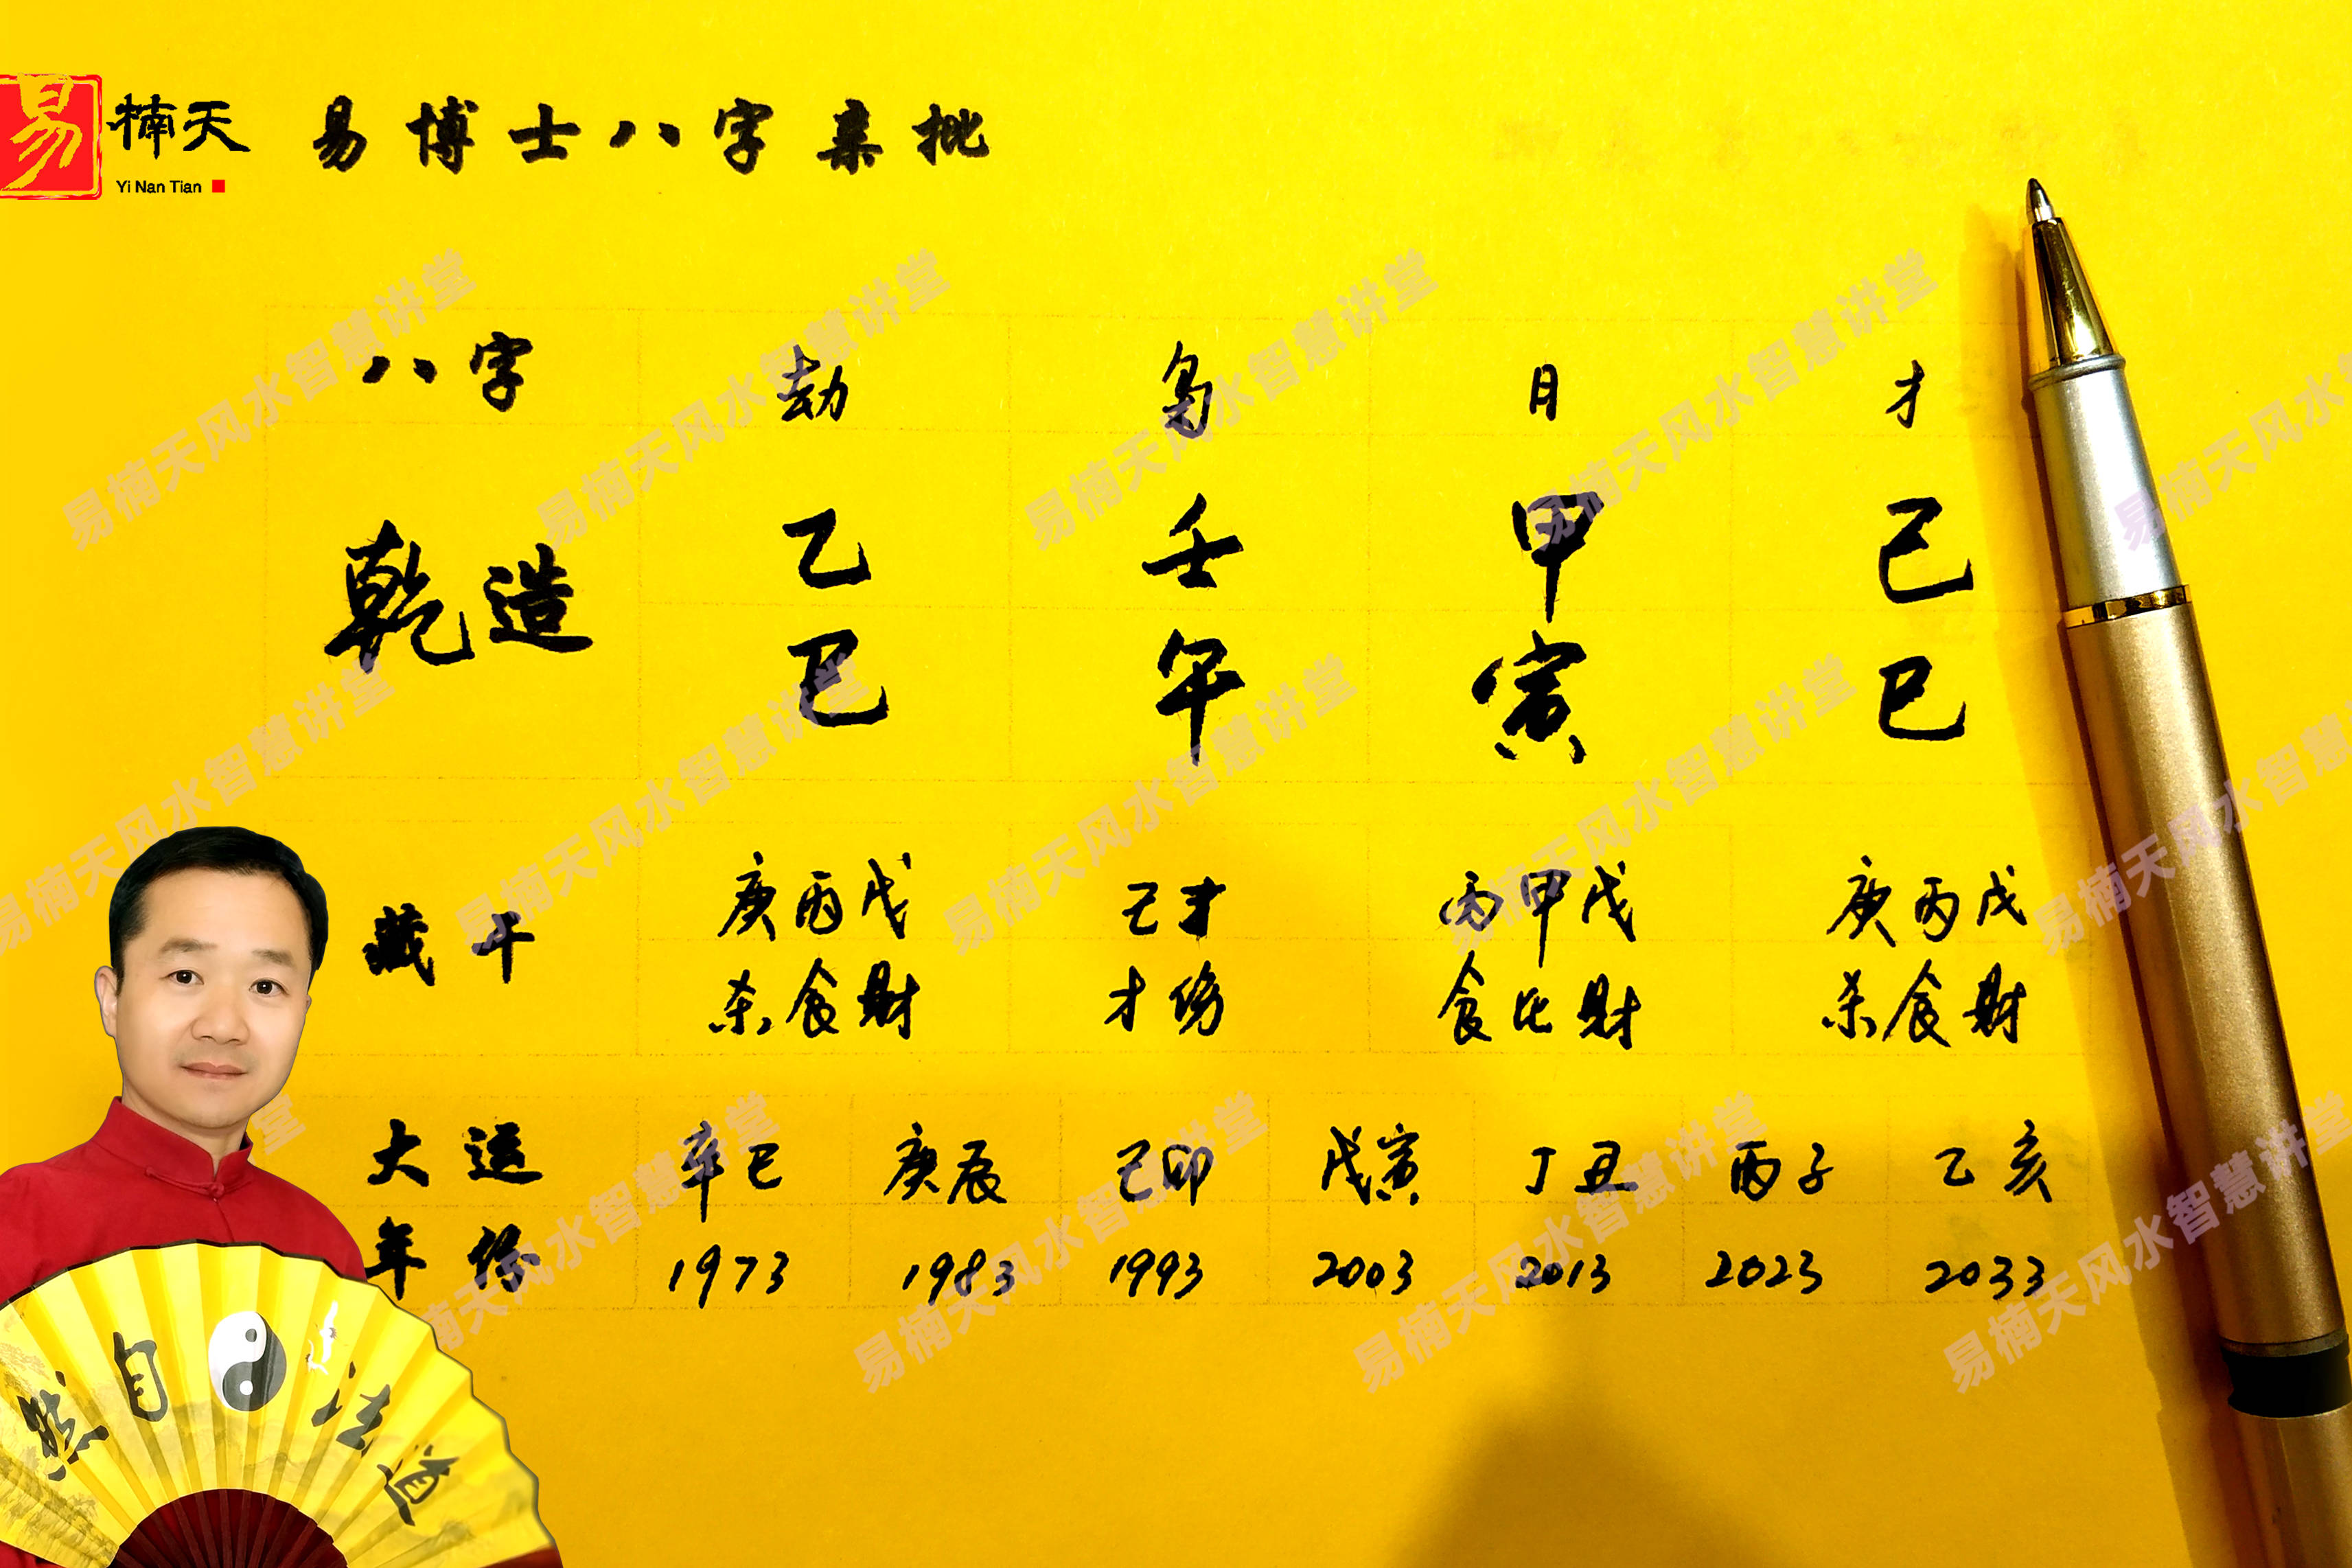 易 楠天 易博士八字亲批
Yi Nan Tian
八字 劫 枭 日 才
乾造 乙 壬 甲 己
巳 午 寅 巳
藏干 庚丙戊 己才 丙甲戊 庚丙戊
杀食财 才伤 食比财 杀食财
大运 辛巳 庚辰 己卯 戊寅 丁丑 丙子 乙亥
年份 1973 1983 1993 2003 2013 2023 2033
道法自然
易楠天风水智慧讲堂